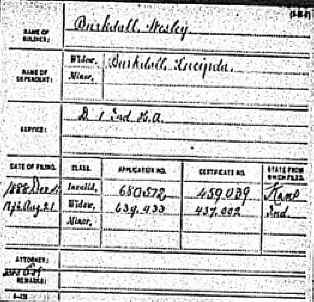 NAME OF SOLDIER: Burkdoll, Wesley
NAME OF DEPENDENT: Widow, Burkdoll Lucinda
Minor,
SERVICE: D 1 Ind. H.A.
DATE OF FILING. CLASS. APPLICATION NO. CERTIFICATE NO. STATE FROM WHICH FILED.
1888 Dec Invalid, 680572 459.039 Kans
Aug 21 Widow, 639.933 437.002 Ind.
Minor,
ATTORNEY:
REMARKS: